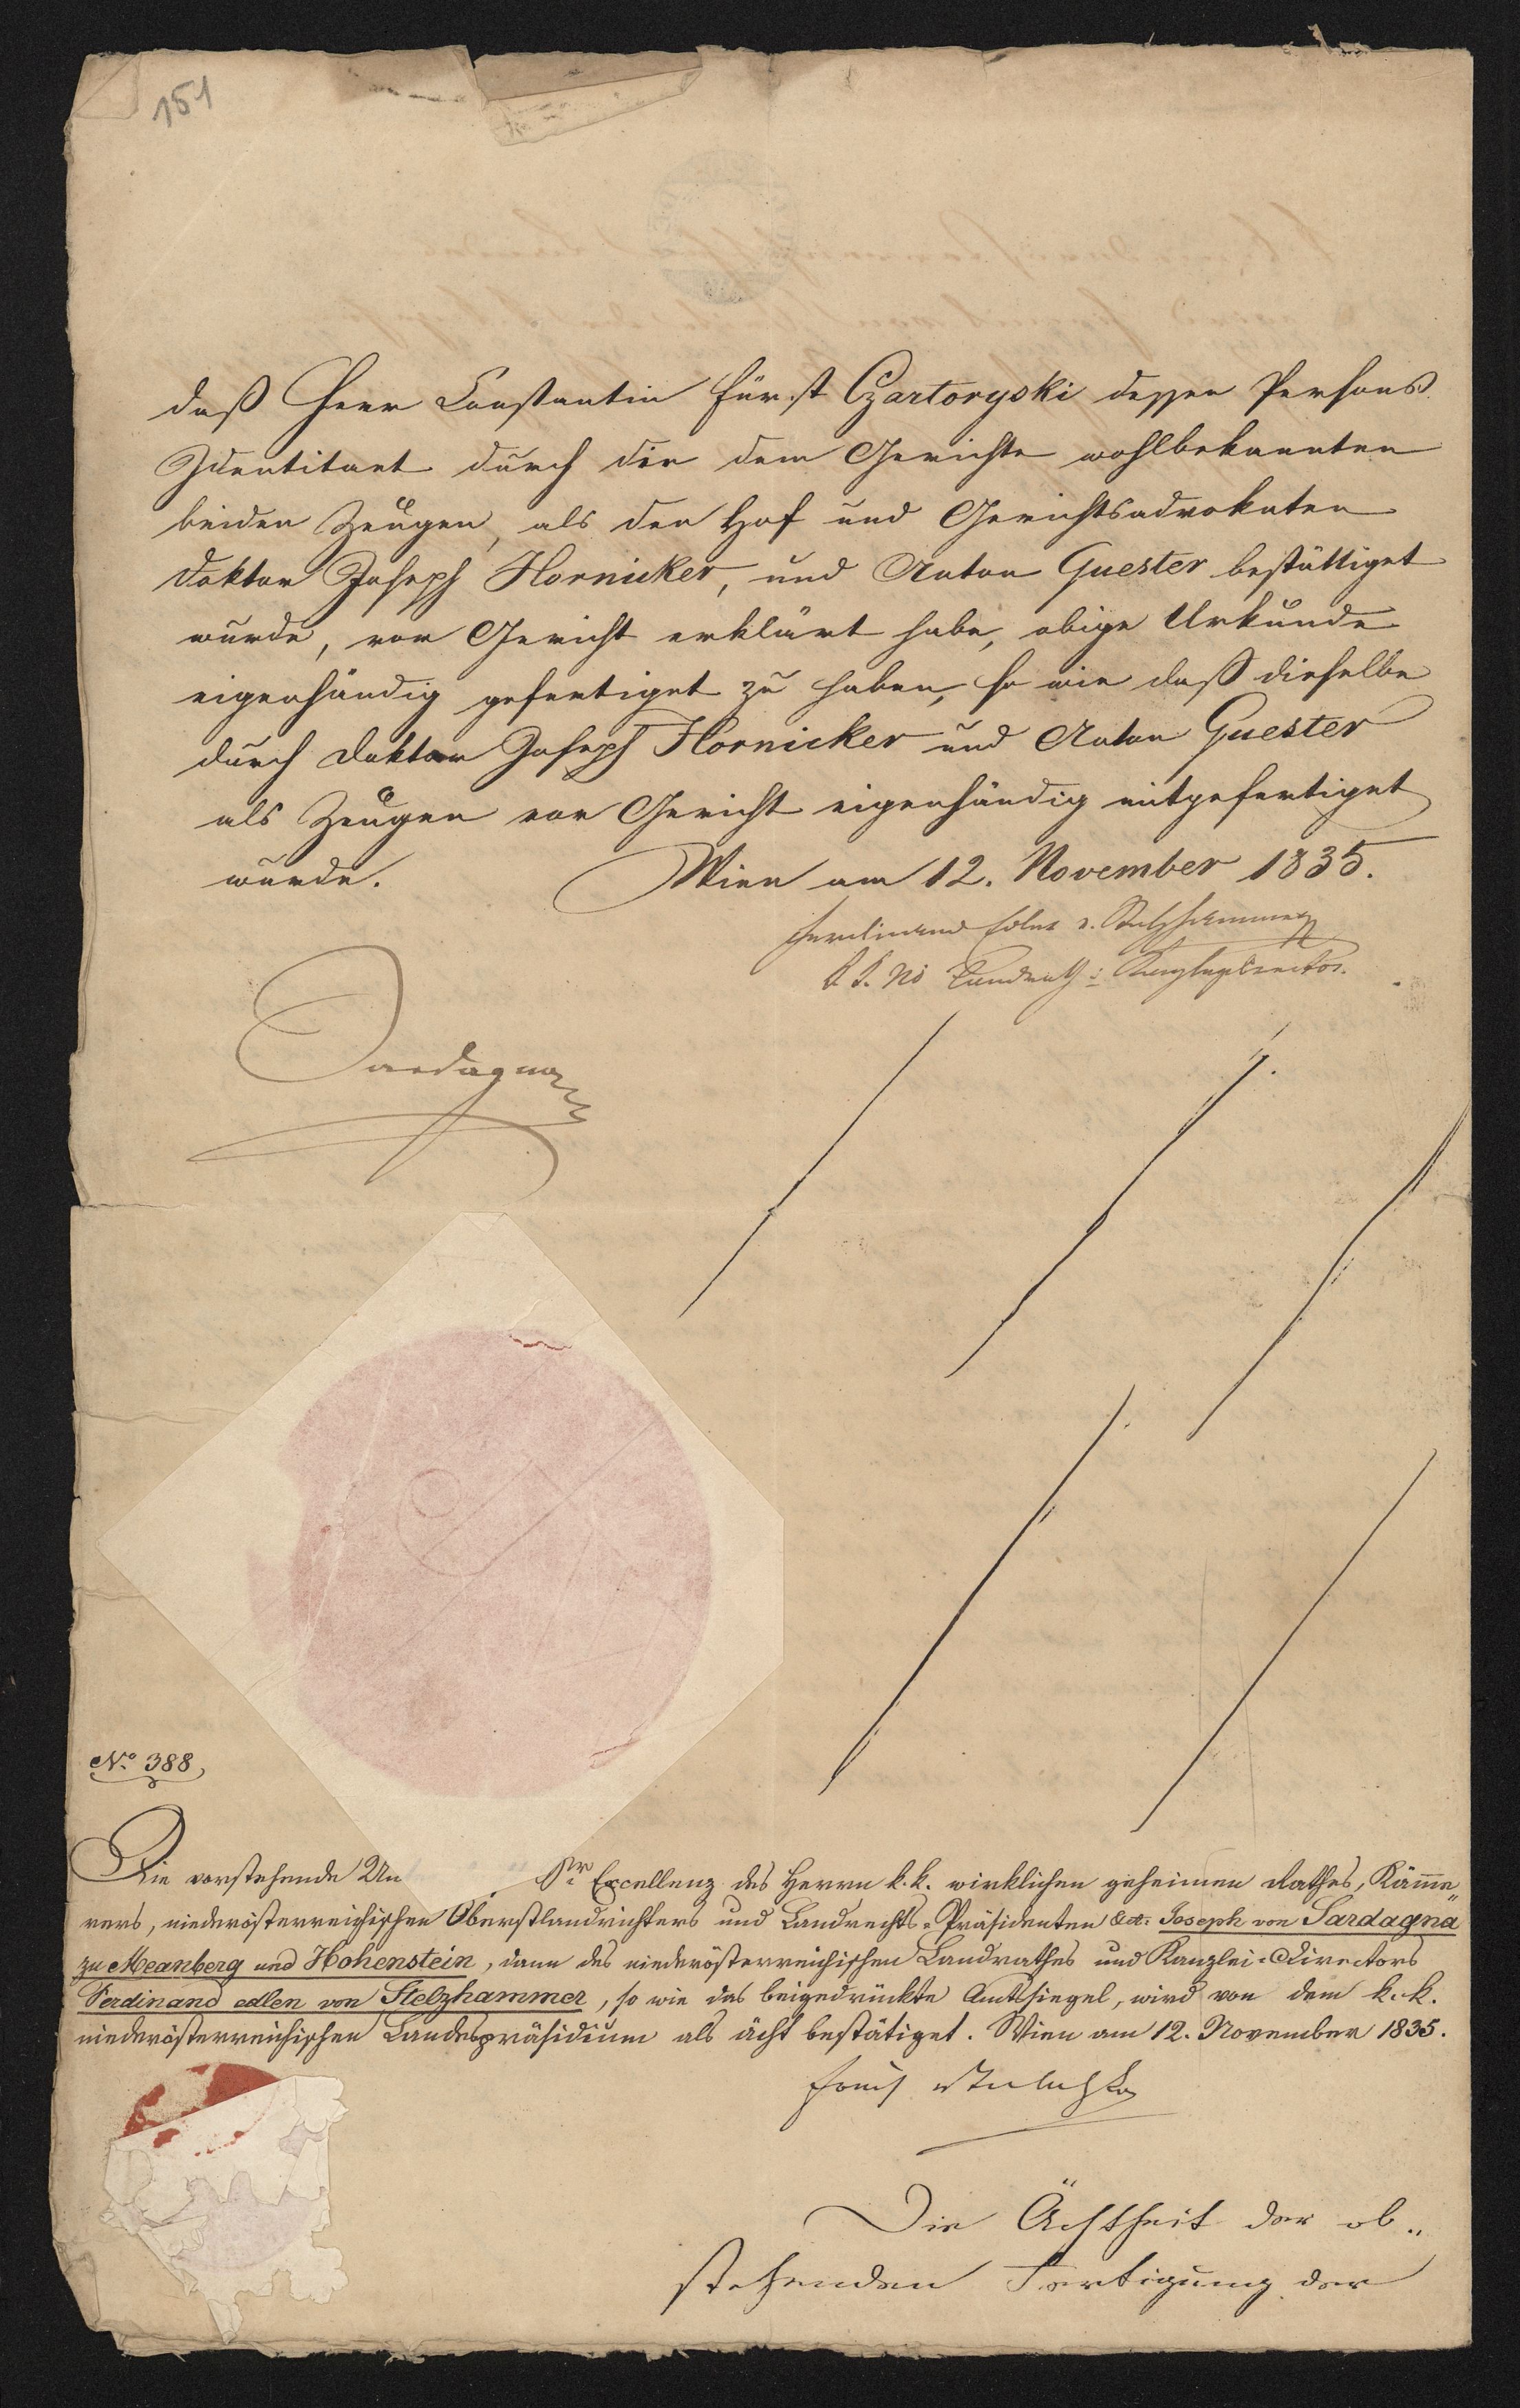 151
daß Herr Constantin Fürst Czartoryski dessen Persons
Identitaet durch die dem Gerichte wohlbekannten
beiden Zeugen, als den Hof und Gerichtsadvokaten
Doktor Joseph Hornicker, und Anton Guester bestättiget
wurde, vor Gericht erklärt habe, obige Urkunde
eigenhändig gefertiget zu haben, so wie daß dieselbe
durch Doktor Joseph Hornicker und Anton Guester
als Zeugen vor Gericht eigenhändig mitgefertiget
wurde. Wien am 12. November 1835.
Ferdinand Edler v. Stelzhammer
k. k. nö Landrath u Kanzleydirector.
Sardagna
No. 388,
Die vorstehende Un Sr. Excellenz des Herrn k. k. wirklichen geheimen Rathes, Kämme„
rers, niederösterreichischen Oberstlandrichters und Landrechts-Präsidenten &ct. Joseph von Sardagna
zu Meanberg und Hohenstein, dann des niederösterreichischen Landrathes und Kanzlei-Directors
Ferdinand edlen von Stelzhammer, so wie das beigedrückte Amtssiegel, wird von dem k. k.
niederösterreichischen Landespräsidium als ächt bestätiget. Wien am 12. November 1835.
Die Ächtheit der ob„
stehenden Fertigung der